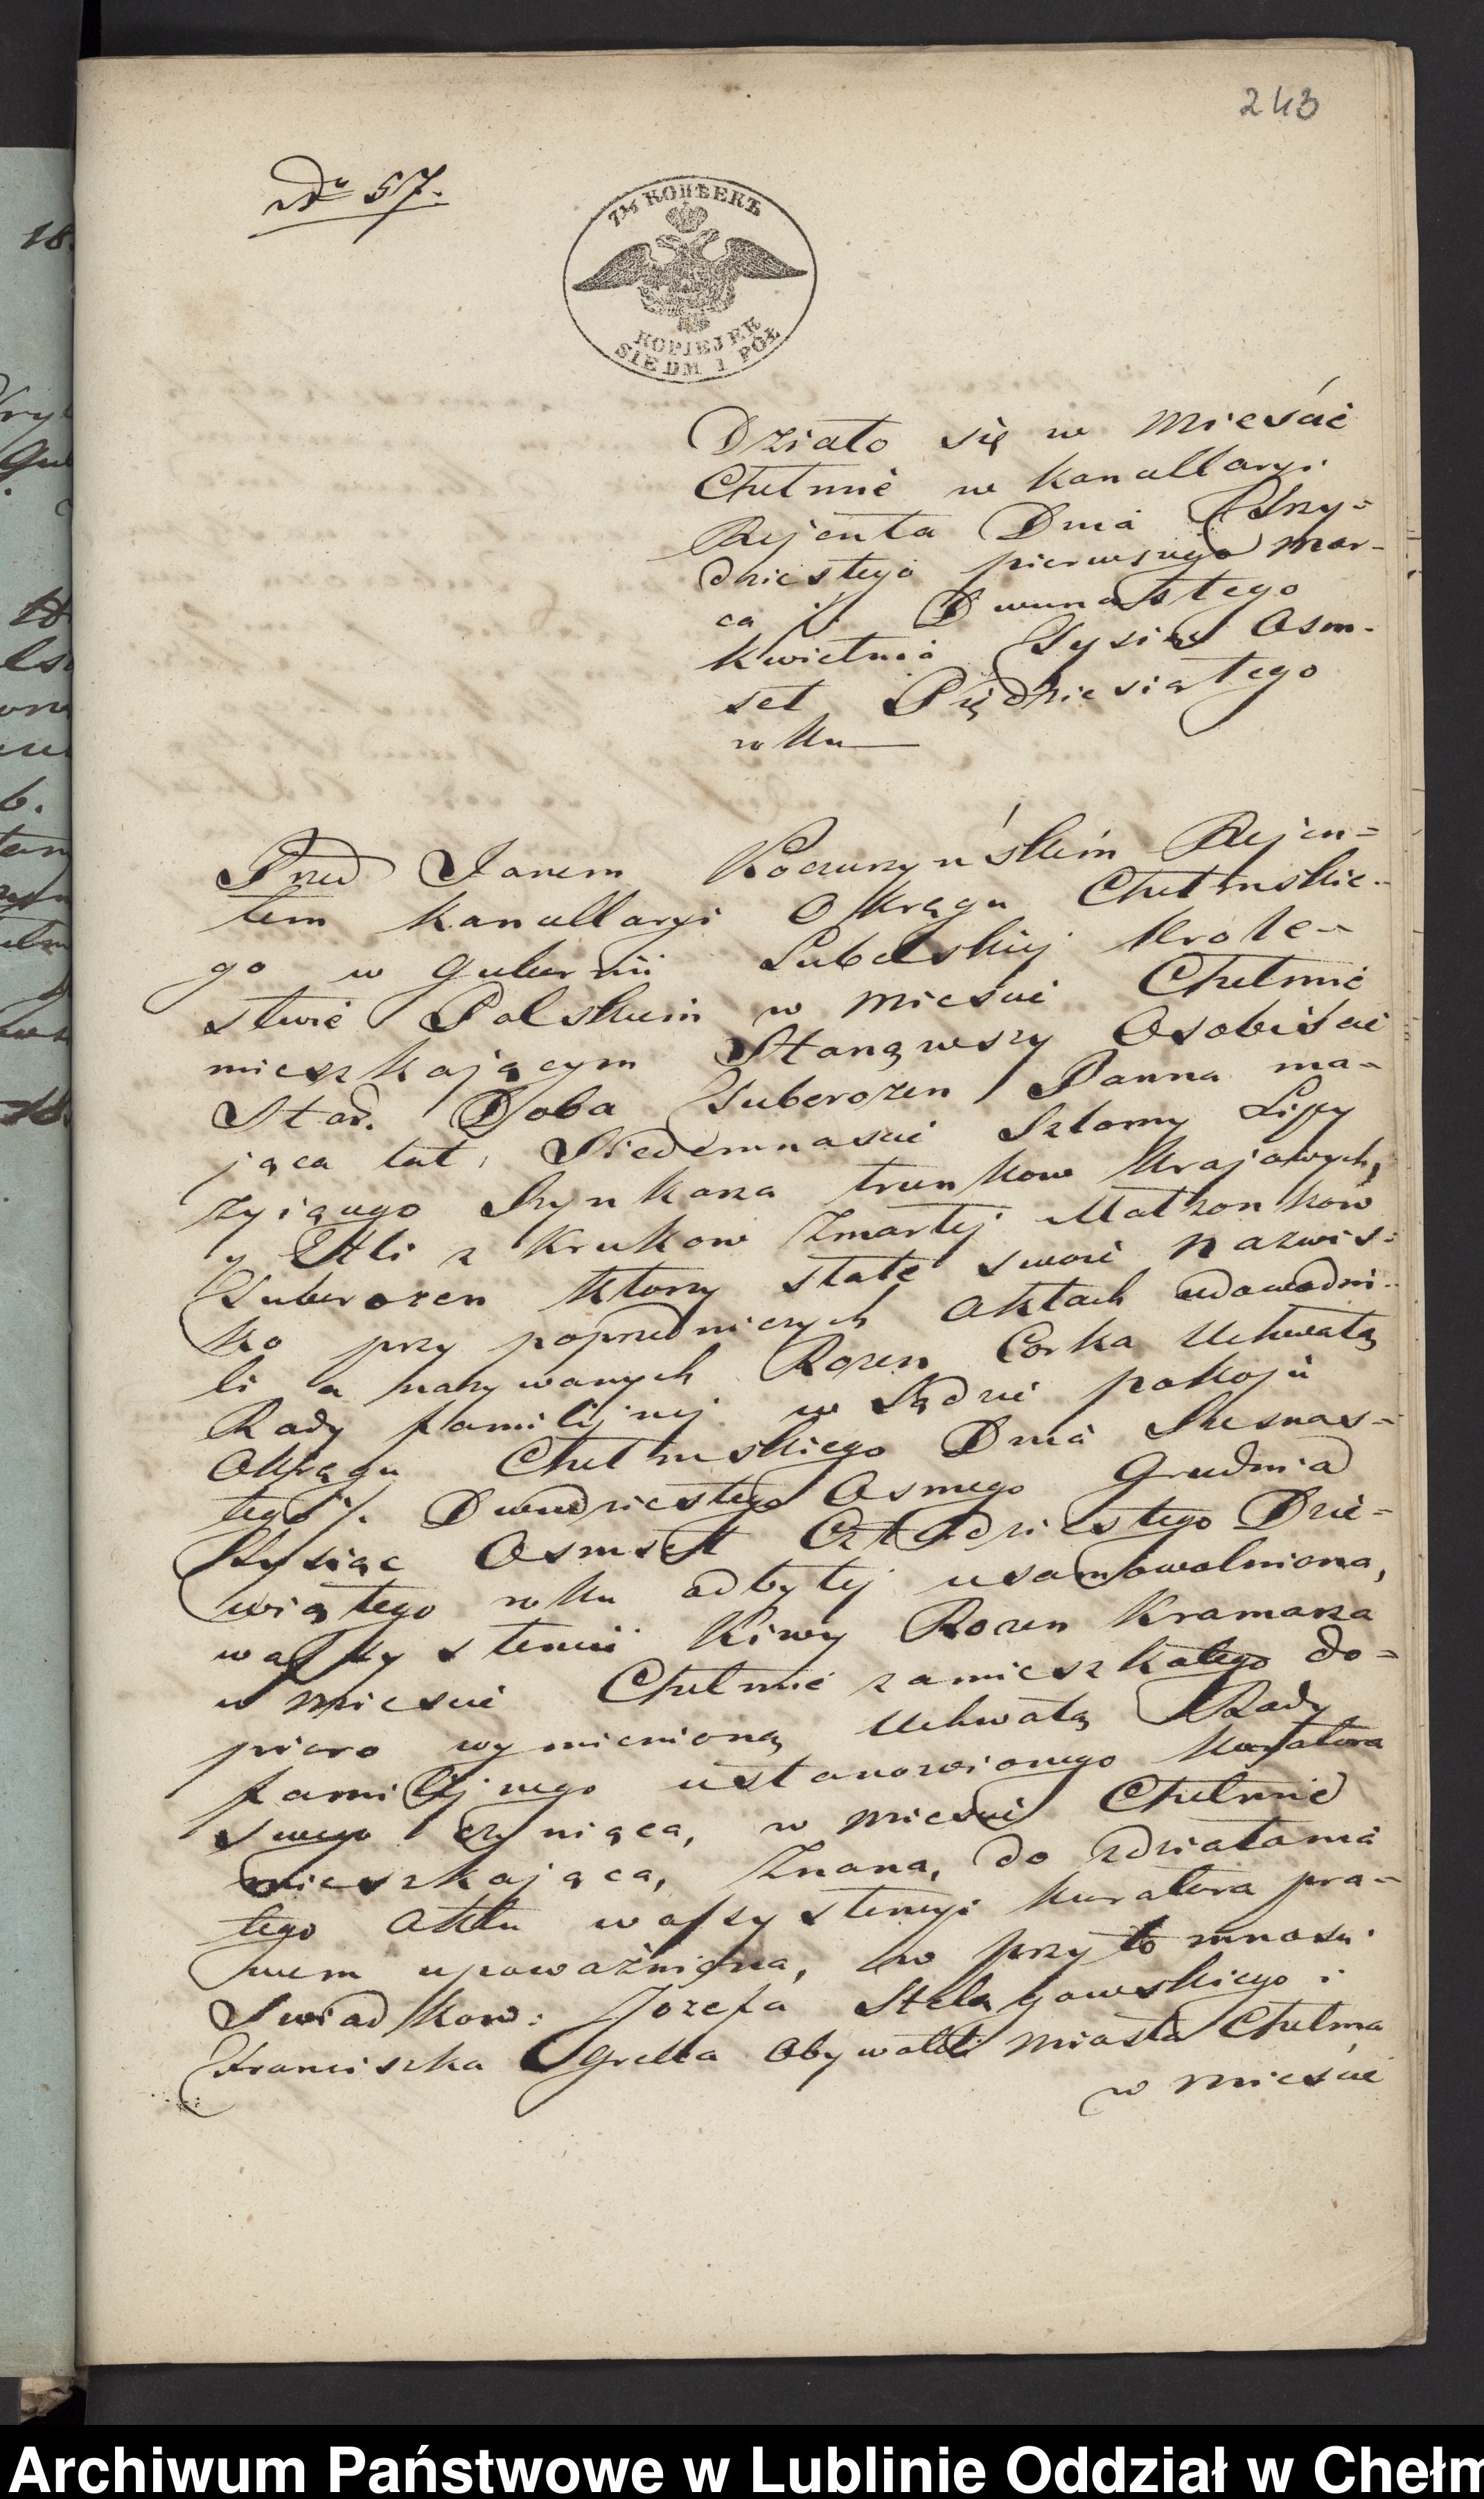 243
No 57.
7½ КОПѢЕКЪ
KOPIEJEK
SIEDM I PÓŁ
Działo się w Mieście
Chełmie w Kancellaryi
Rejenta Dnia Trzy=
dziestego pierwszego Mar-
ca /: Dwunastego
Kwietnia Tysiąc Osm-
set Pięćdziesiątego
roku
Przed Janem Koczurzyńskim Rejen=
tem Kancellaryi Okręgu Chełmskie-
go w Gubernii Lubelskiej Krole-
stwie Polskiem w Mieście Chełmie
mieszkającym Stanąwszy Osobiście
Star. Doba Guberozen Panna ma-
jąca lat, Siedemnaście Szlomy Lipy
żyjącego Szynkarza trunkow Krajowych,
y Itli z Krukow Zmarłej Małżonkow
Guberozen ktorzy stałe swoie nazwis-
ko przy poprzedniczych Aktach udowodni-
li a nazywanych Rozen Corka Uchwałą
Rady familijnej w Sądzie pokoju
Okręgu Chełmskiego Dnia Szesnas-
tego /. Dwudziestego Osmego Grudnia
Tysiąc Osmset Czterdziestego Dzie-
wiątego roku odbytej usamowolniona,
w assystencii Kiwy Rozen Kramarza
w Mieście Chełmie zamieszkałego do-
piero wymienioną Uchwałą Rady
familijnego ustanowionego Kuratora
swego czyniąca, w Mieście Chełmie
mieszkająca, Znana, do zdziałania
tego Aktu w assystencyi Kuratora pra-
wem upoważniona, w przytomności
Swiadkow: Jozefa Stelągowskiego i
Franciszka Grella Obywateli Miasta Chełma
w Mieście
Archiwum Państwowe w Lublinie Oddział w Chełm